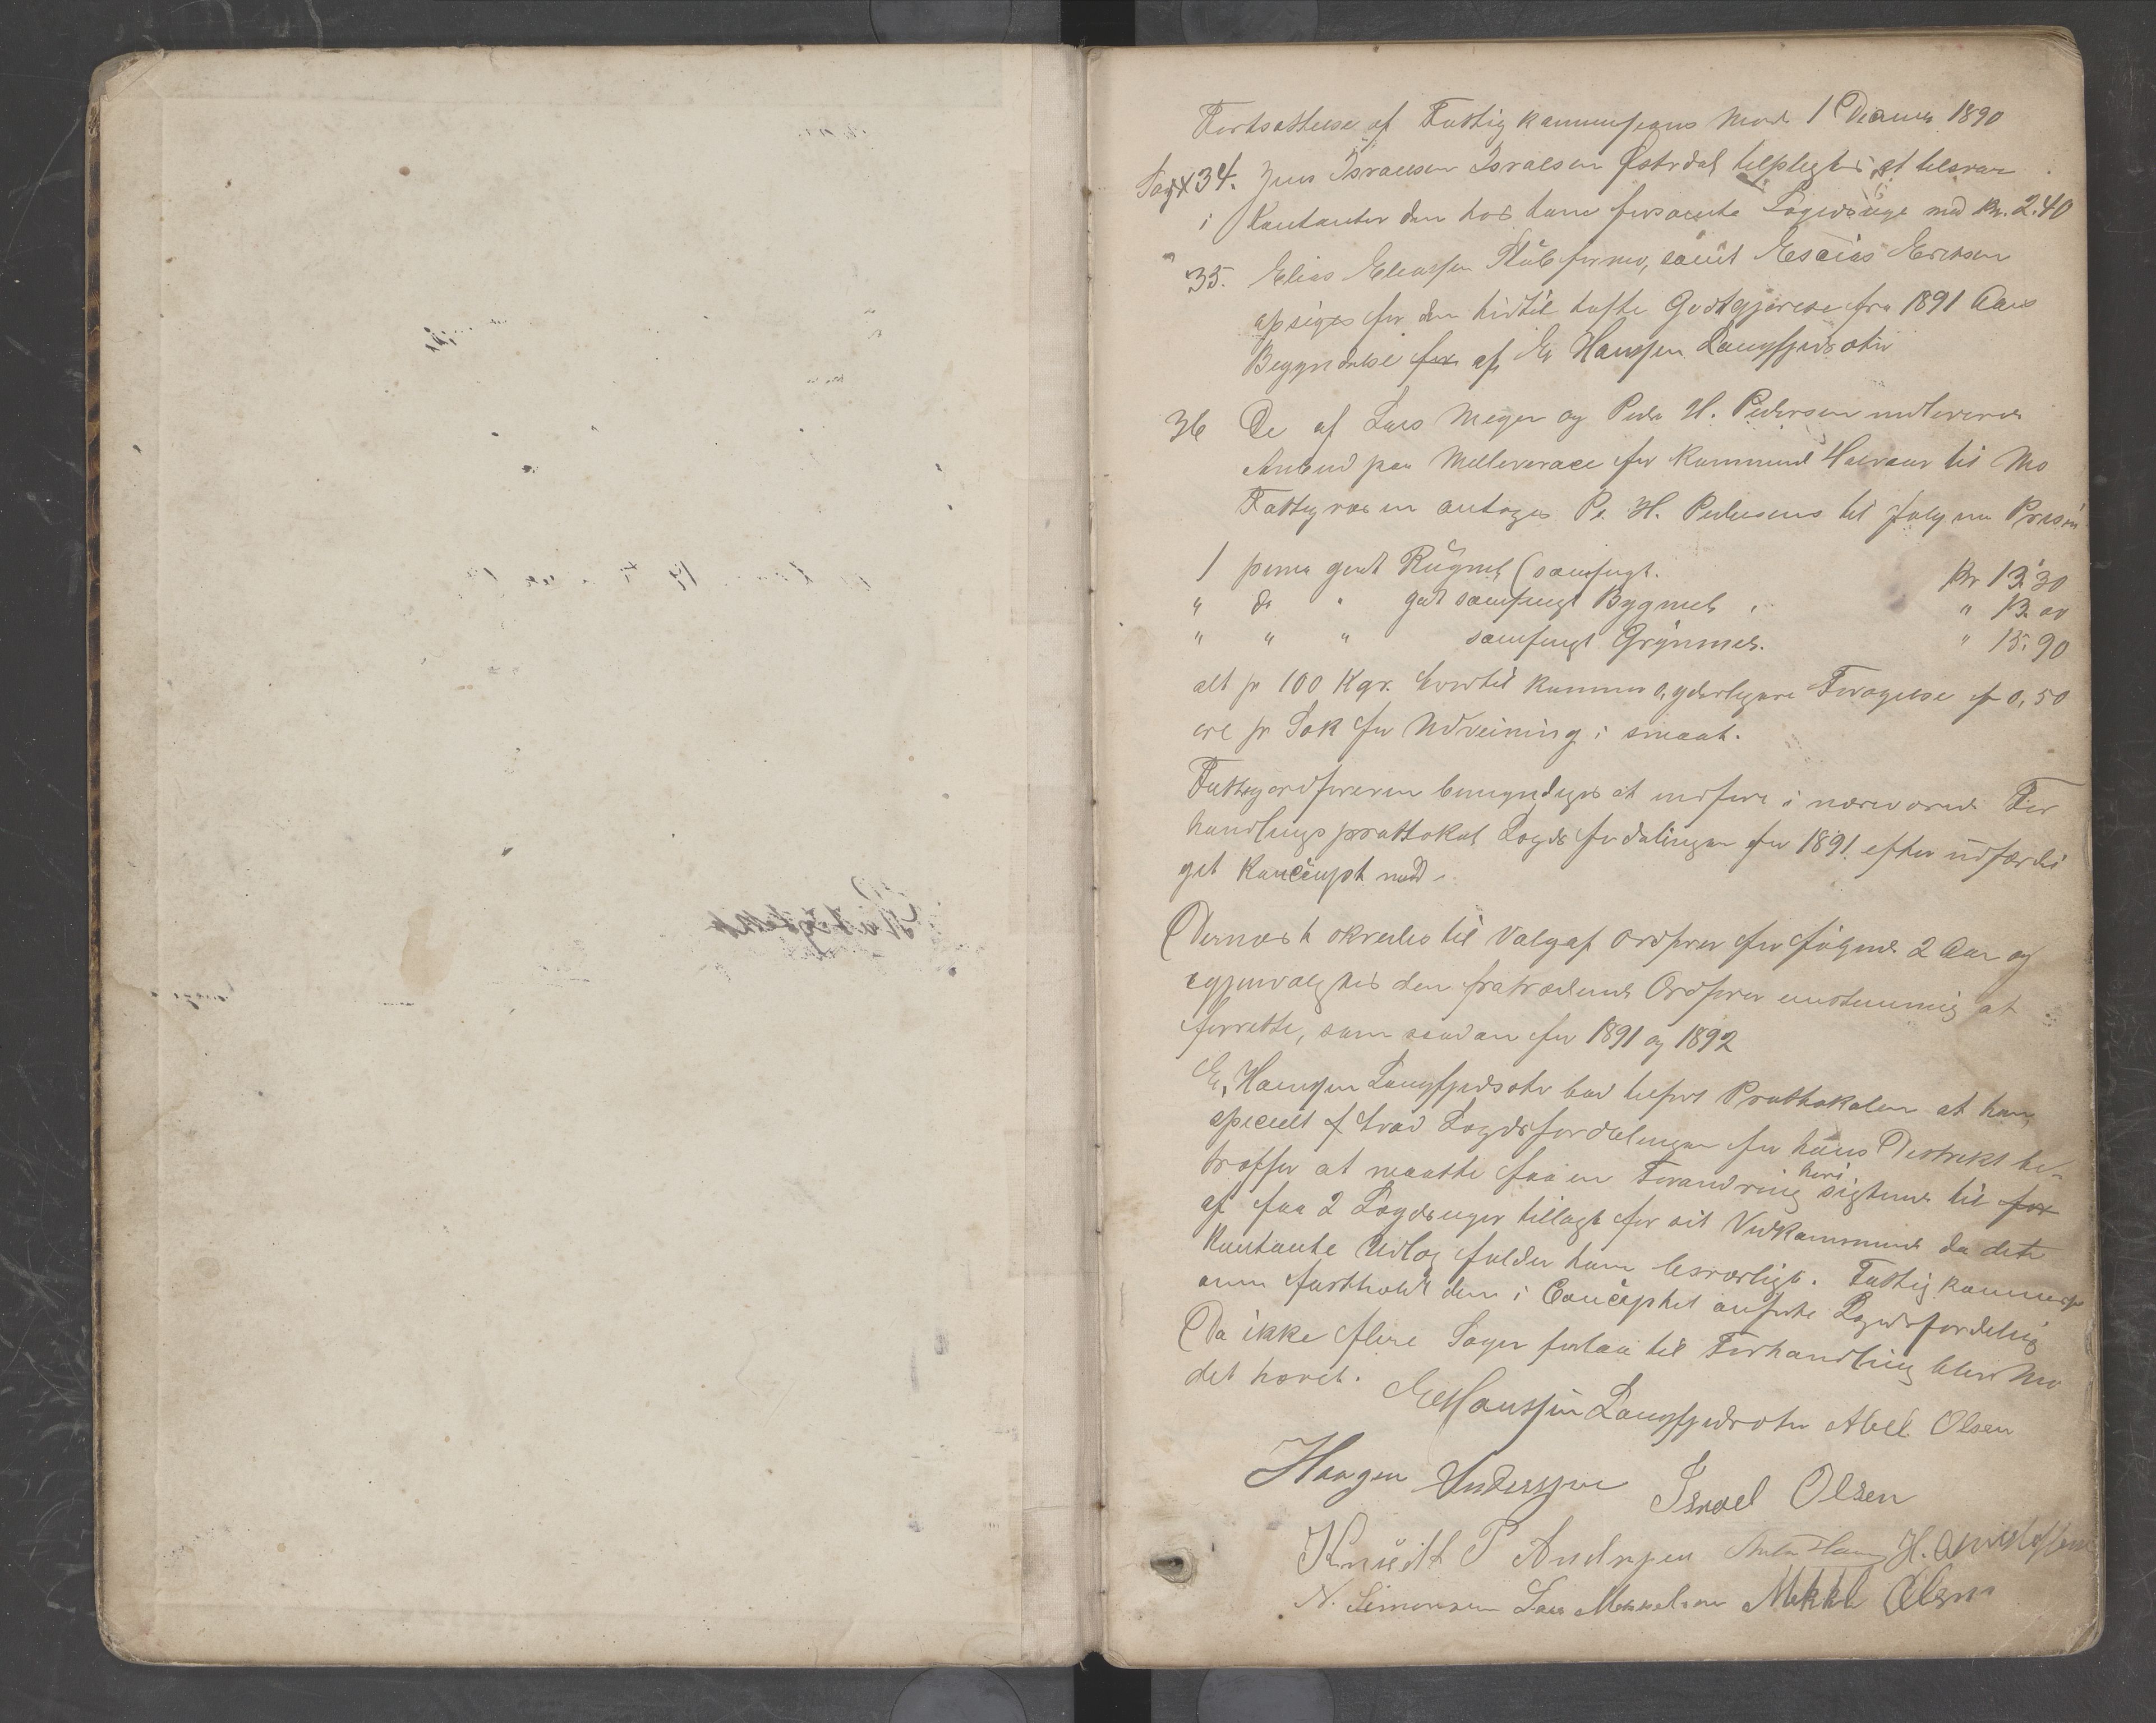 Fortsættelse af Fattigkommissions Møde 1 Decemb 1890
Sag 34. Jens Israelsen Israelsen Østrdal tilpligtes at tilsvare
i Kontanter den hos ham forsømte Lægdsuge med Kr. 2.40
35. Elias Eliassen forrner, samt Esaias Eriksen
opsiges for den hidtil hafte Godtgjørelse fra 1891 Aars
Begyndelse for af E. Hanssen Langfjordsotn
36 De af Lars Meyer og Peder H. Pedersen indleverede
Anbud paa Melleverance for Kommunen Halvaar til Mo
Fattigvæsen antoges P. H. Pedersens til følgende Priser
1 prima godt Rugmel (samfengt. Kr 13.30
" do " godt samfengt Bygmel " 13.00
" " " samfengt Grynmel. " 15.90
alt pr 100 Kgr. hvortil kommer yderligere Forøgelse af 0,50
øre pr Sæk for Udveining i smaat.
Fattigordføreren bemyndiges at indføre i nærværende For
handlingsprottokol Lægdsfordelingen for 1891 efter udfærdi
get Koncept
Dernæst skredes til Valg af Ordfører for følgende 2 Aar og
igjenvalgtes den fratrædende Ordfører enstemmig at
forrette, som saadan for 1891 og 1892
E. Hanssen Langfjordsotn bad tilført Prottokolen at han,
specielt hvad Lægdsfordelingen for hans Destrikt be-
træffer at maatte faa en Forandring heri sigtende til for
at faa 2 Lægdsuger tillagt for sit Vedkommende da dette
Kontante Udlæg falder ham besværligt. Fattigkommissi
onen fastholdt den i Conceptet anførte Lægdsfordeling
Da ikke flere Sager forlaa til Forhandling blev Mø
det hævet. E Hanssen Langfjordsotn Abel Olsen
Haagen Anderssen Israel Olsen
Knudt P Andersen H.
N. Simonsen Lars Mikkelsen Mikkel Olsen